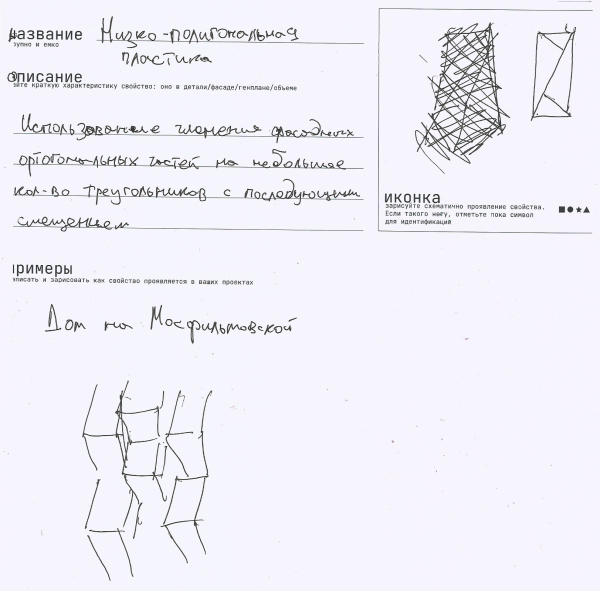 название Низко-полигональная
крупно и емко
пластика
описание
дайте краткую характеристику свойство: оно в детали/фасаде/генплане/объеме
Использование членения фасадных
ортогональных частей на небольшое
кол-во треугольников с последующим
смещением
иконка
зарисуйте схематично проявление свойства.
Если такого нету, отметьте пока символ
для идентификаций
примеры
описать и зарисовать как свойство проявляется в ваших проектах
Дом на Мосфильмовской